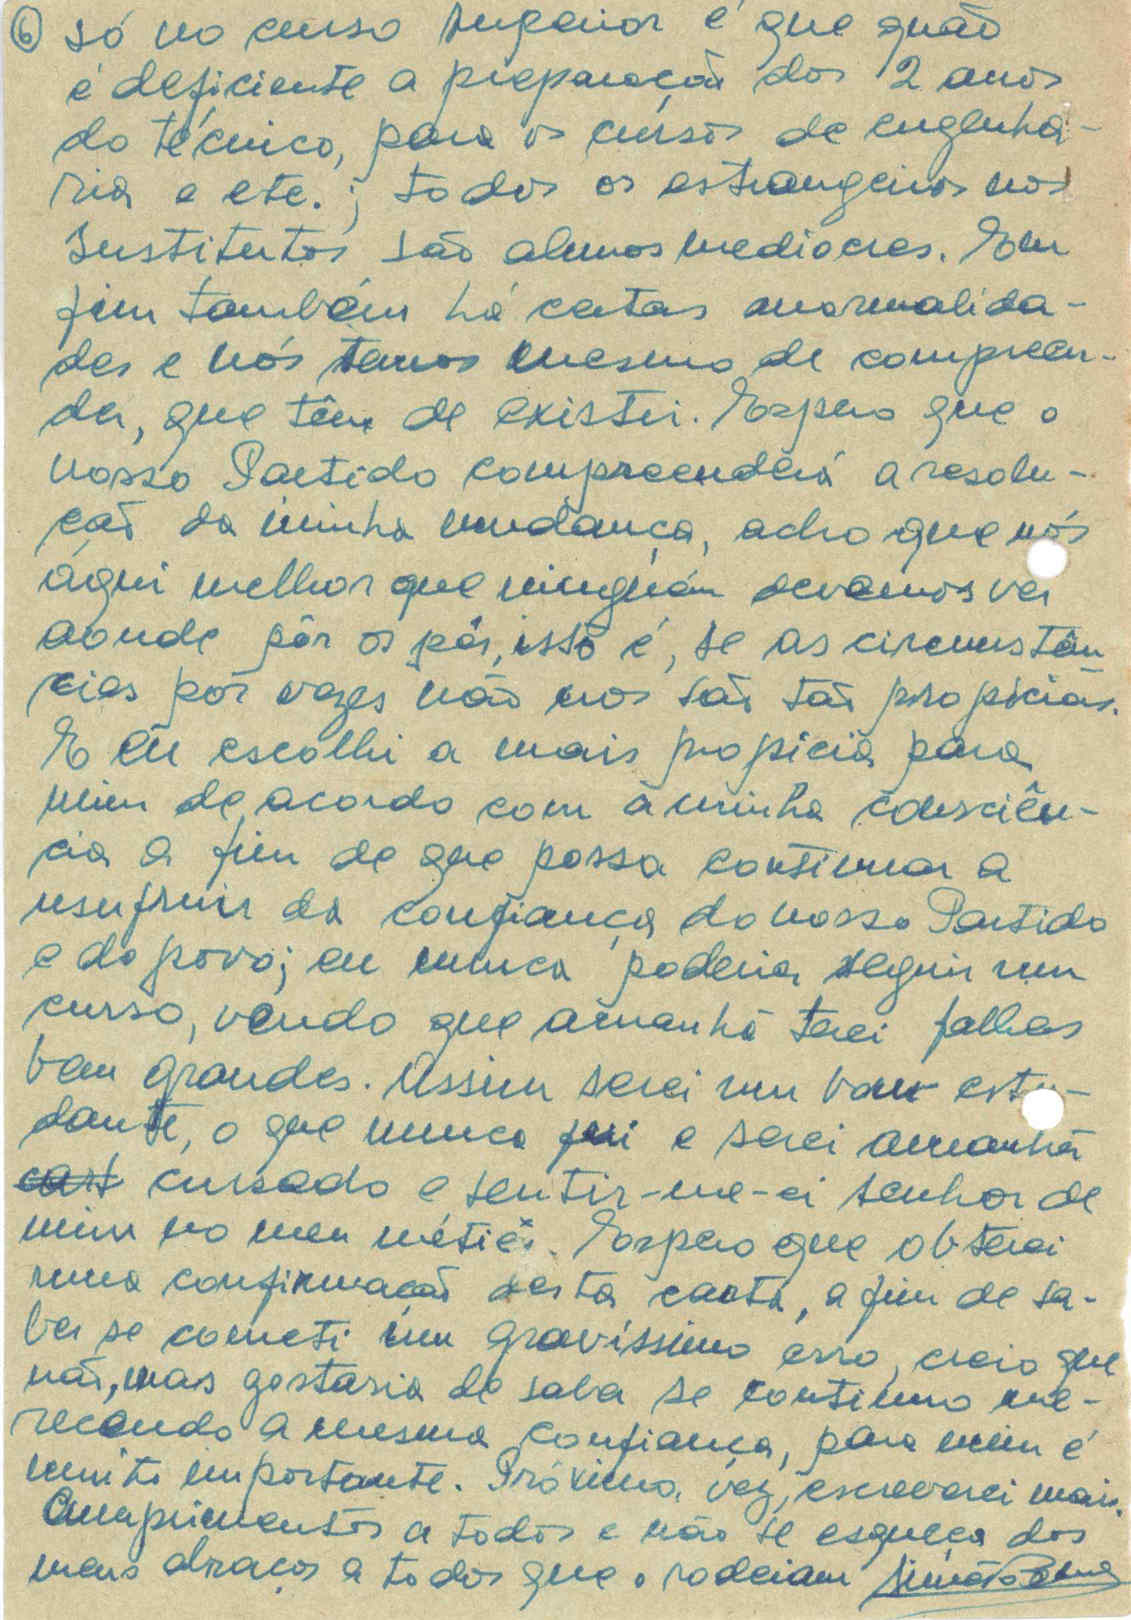 ⑥ só no curso superior é que quão
é deficiente a preparação dos 2 anos
do técnico, para os cursos de engenha-
ria e etc.; todos os estrangeiros nos
Institutos são alunos mediocres. Em
fim também há certas anormalida-
des e nós temos mesmo de compreen-
der, que têm de existir. Espero que o
nosso Partido compreenderá a resolu-
ção da minha mudança, acho que nós
áqui melhor que ninguém devemos ver
aonde pôr os pés, isso é, se as circunstân
cias por vezes não nos são tão propícias.
E eu escolhi a mais propícia para
mim de acordo com a minha consciên-
cia a fim de que possa continuar a
usufruir da confiança do nosso Partido
e do povo; eu nunca poderia seguir um
curso, vendo que amanhã terei falhas
bem grandes. Assim serei um bom estu-
dante, o que nunca fui e serei amanhã
cursado e sentir-me-ei senhor de
mim no meu métier. Espero que obterei
uma confirmação desta carta, a fim de sa-
ber se cometi um gravíssimo erro, creio que
não, mas gostaria de saber se continuo me-
recendo a mesma confiança, para mim é
muito importante. Próxima vez, escreverei mais.
Cumprimentos a todos e não se esqueça dos
meus abraços a todos que o rodeiam